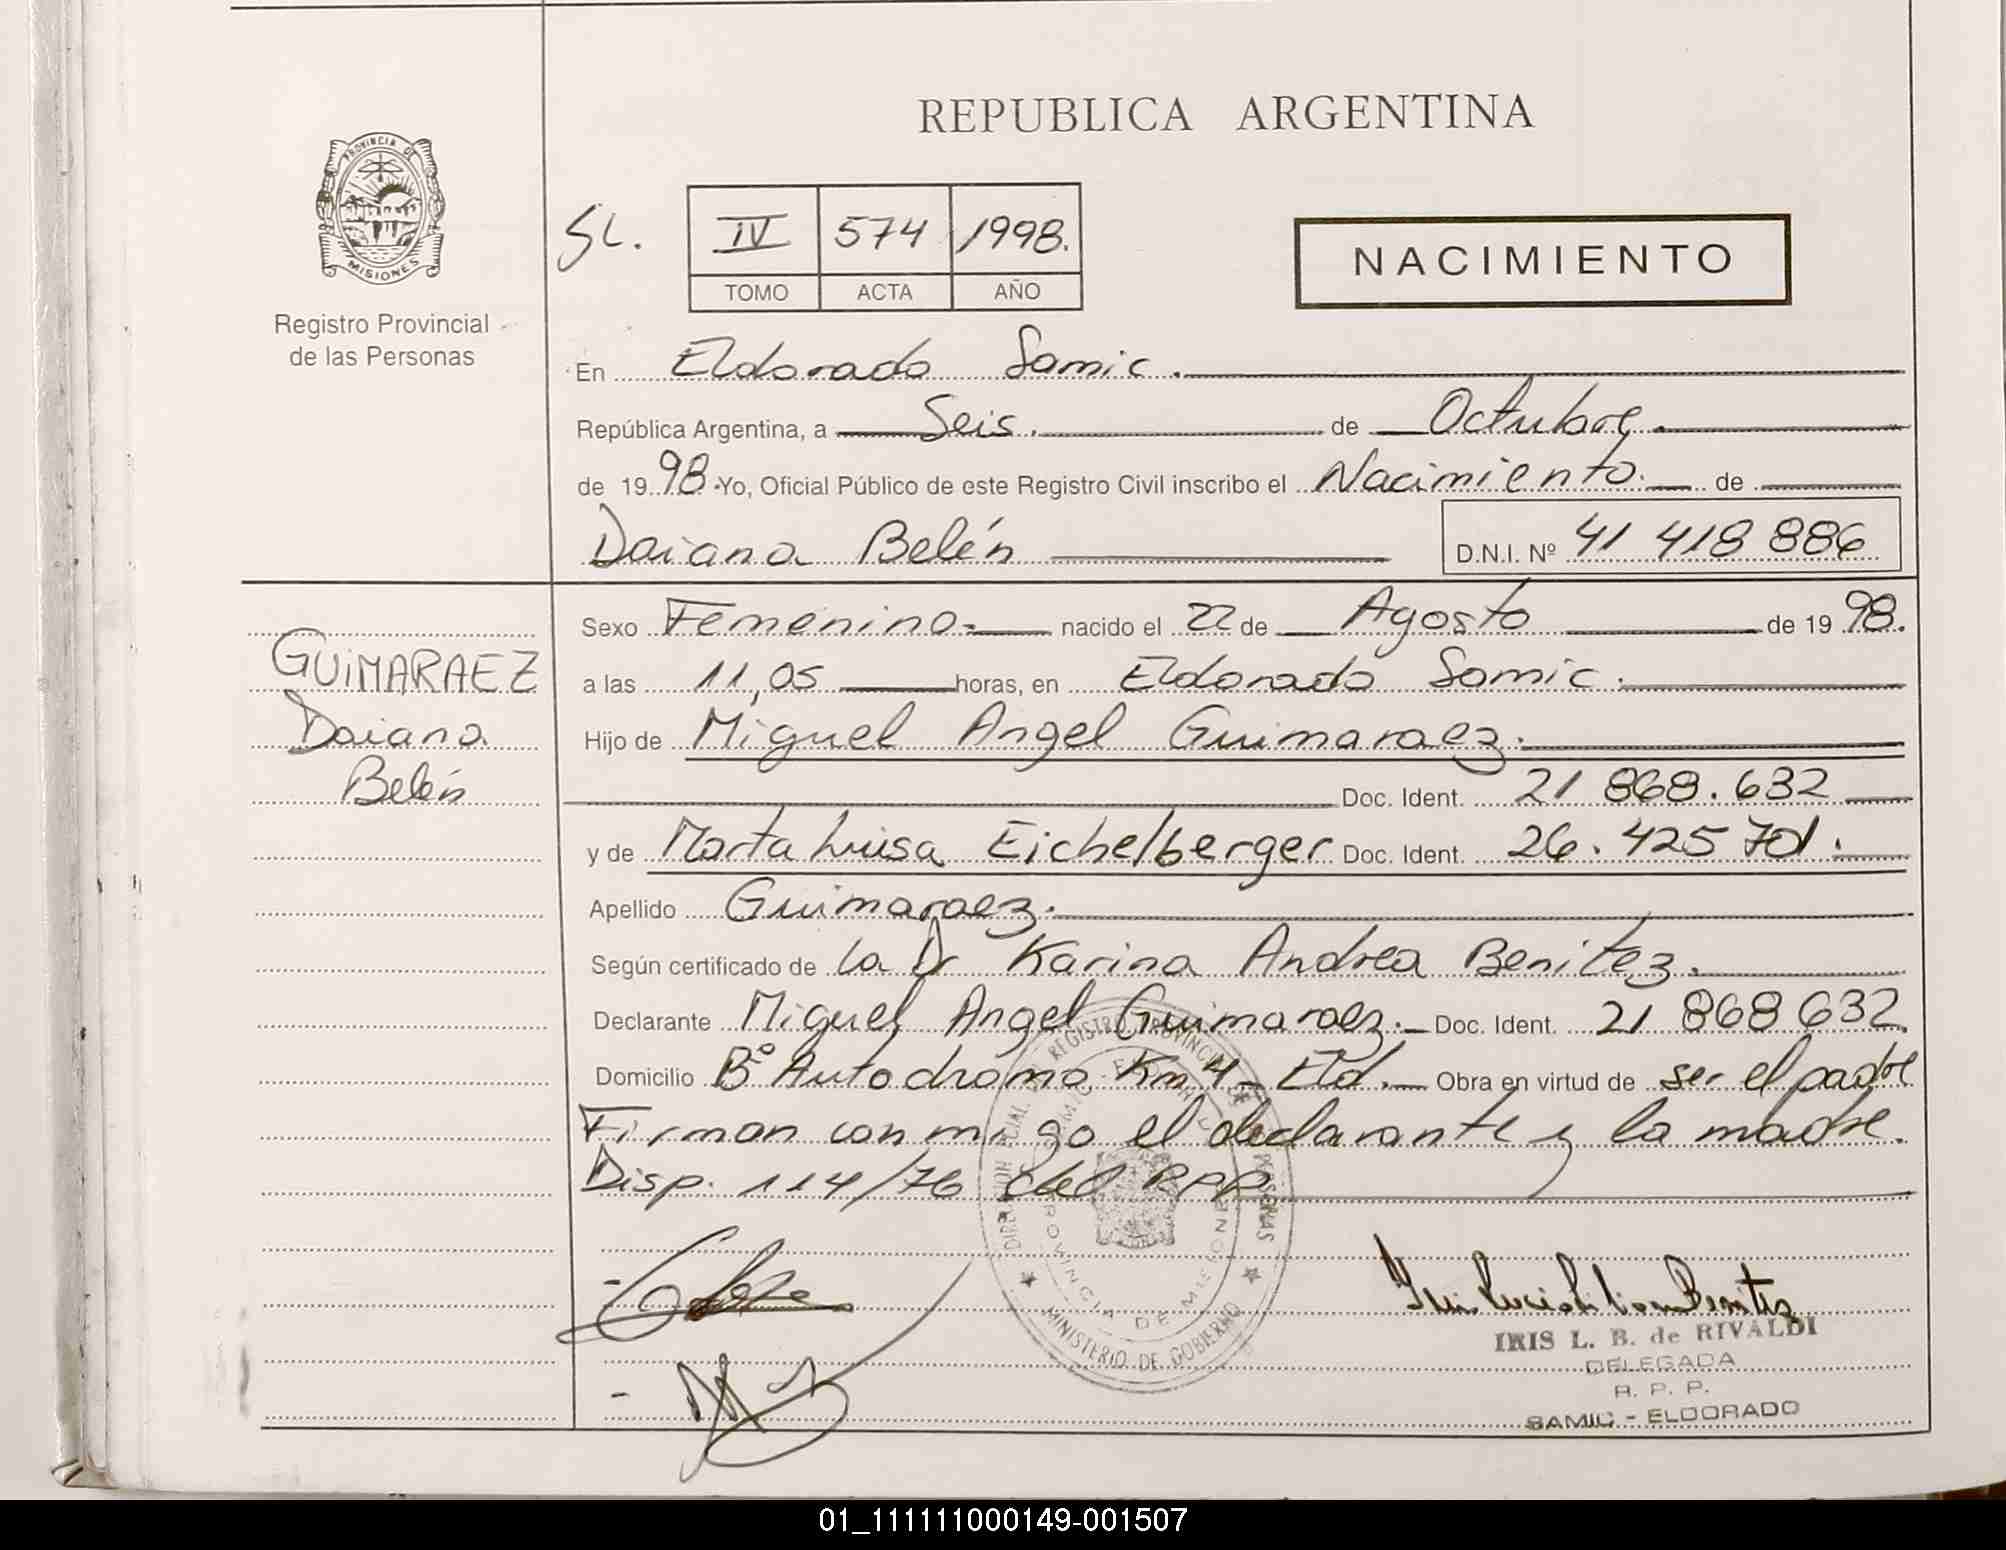 REPUBLICA ARGENTINA
PROVINCIA DE
MISIONES
Registro Provincial
de las Personas
SL. IV 574 1998.
TOMO ACTA AÑO
NACIMIENTO
En Eldorado Samic.
República Argentina, a Seis. de Octubre.
de 1998. Yo, Oficial Público de este Registro Civil inscribo el Nacimiento. de
Daiana Belén D.N.I. Nº 41 418 886
GUIMARAEZ
Daiana
Belén
Sexo Femenino. nacido el 22 de Agosto de 1998.
a las 11,05 horas, en Eldorado Samic.
Hijo de Miguel Angel Guimaraez.
Doc. Ident. 21 868.632
y de Marta Luisa Eichelberger Doc. Ident. 26.425 701.
Apellido Guimaraez.
Según certificado de la Dr Karina Andrea Benitez.
Declarante Miguel Angel Guimaraez. Doc. Ident. 21 868 632.
Domicilio Bº Autodromo Km 4 - Eld. Obra en virtud de ser el padre
Firman con migo el declarante y la madre.
Disp. 114/76 del RPP
REGISTRO PROVINCIAL DE LAS PERSONAS
PROVINCIA DE MISIONES
MINISTERIO DE GOBIERNO
IRIS L. B. de RIVALDI
DELEGADA
R. P. P.
SAMIC - ELDORADO
01_111111000149-001507